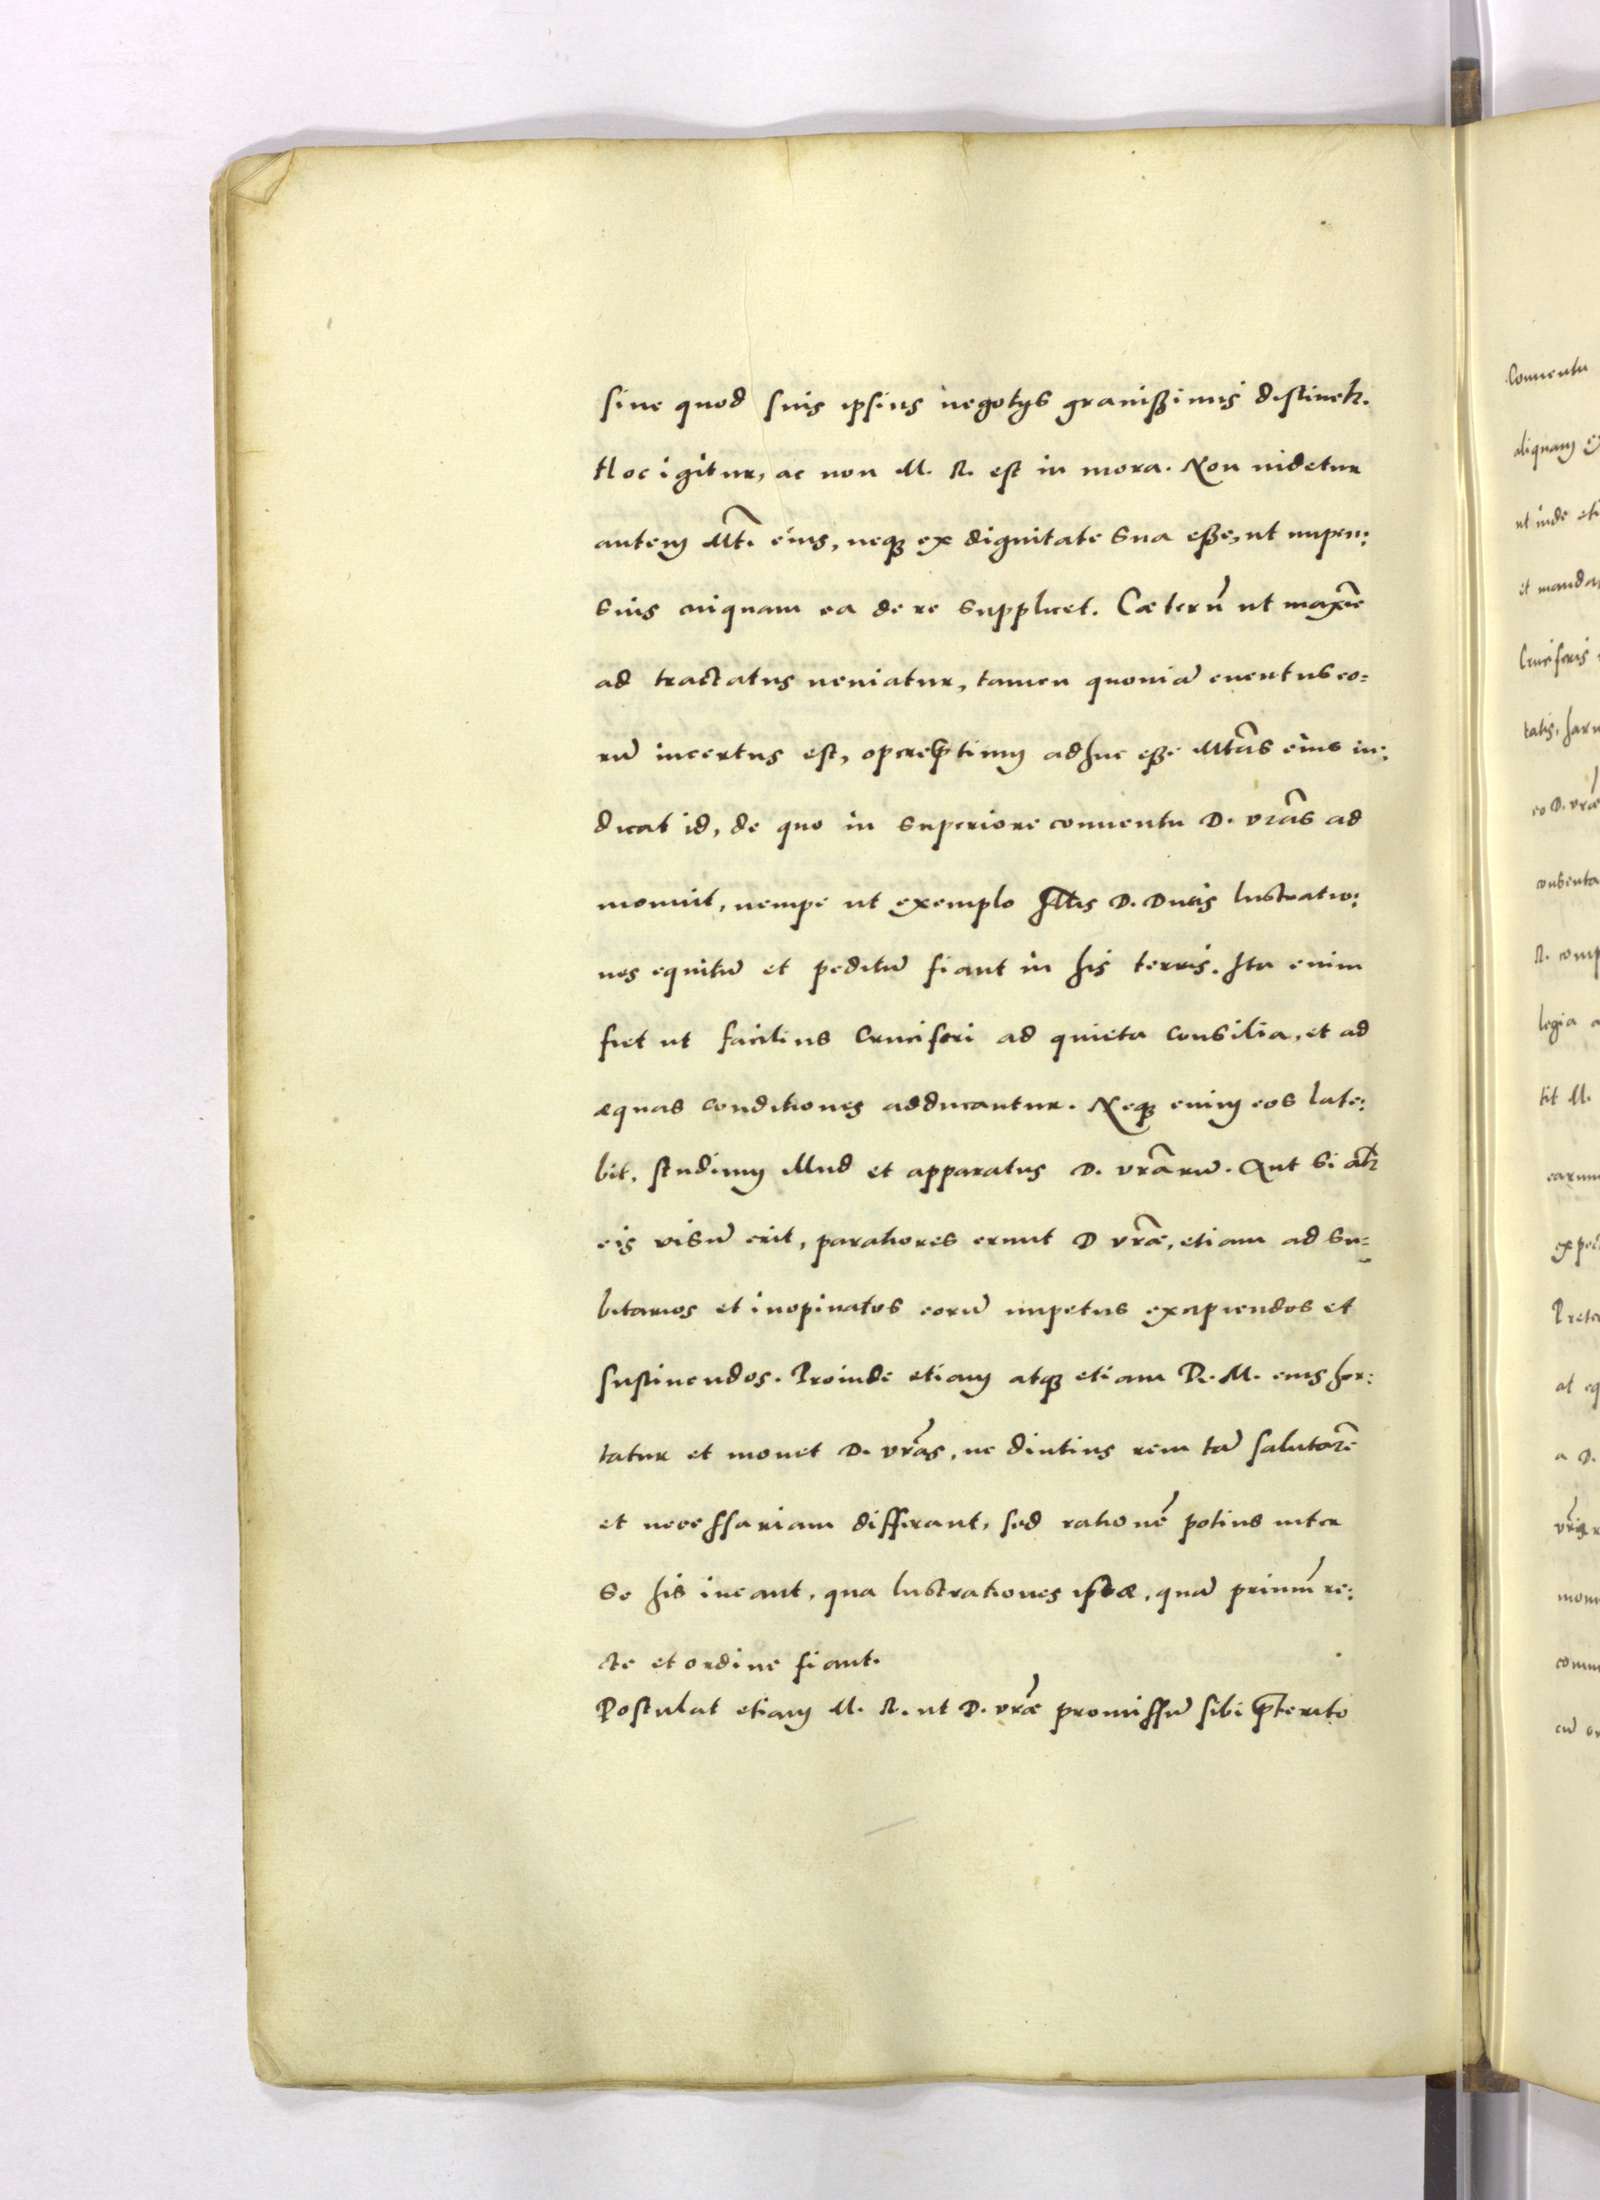 siue quod suis ipsius negotys grauißimis distineh.
Hoc igitur, ac non M. R. est in mora. Non uidetur
autem Mti eius, neqȝ ex dignitate sua eße, ut impen:
sius cuiquam ea de re supplicet. Cæterũ ut maxiẽ
ad tractatus ueniatur, tamen quoniã euentus eo=
rũ incertus est, opere prtium adhuc eße Mtãs eius iu:
dicat id, de quo in superiore conuentu D. vrãs ad
monuit, nempe ut exemplo Illtis D. Ducis lustratio:
nes equitũ et peditũ fiant in his terris. Ita enim
fiet ut facilius Cruciferi ad quieta consilia, et ad
æquas conditiones adducantur. Neqȝ enim eos late:
bit, studium illud et apparatus D. vrãrũ. Aut si alr̃
eis visũ erit, paratiores erunt D vrãe, etiam ad su=
bitarios et inopinatos eorũ impetus excipiendos et
sustinendos. Proinde etiam atqȝ etiam D. M. eius hor:
tatur et monet D. vrãs, ne diutius rem tã salutarẽ
et necessariam differant, sed rationẽ potius inter
se his ineant, qua lustrationes istæ, quã primũ re:
cte et ordine fiant.
Postulat etiam M. R. ut D. vrãe promissũ sibi pterito
Conuentu
aliquam
ut inde eti
et mandat
Cruciferis
tatis, haru
eo D. vrãe
consenta
R. comp
legia a
tit M.
earum
expec
Preter
at eq
a D.
vris
mon
comm
cũ or